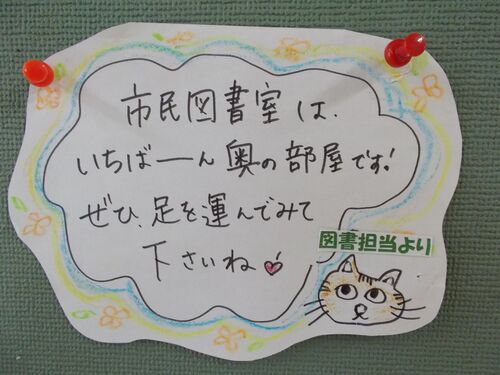 市民図書室は、
いちばーん奥の部屋です!
ぜひ、足を運んでみて
下さいね
図書担当より